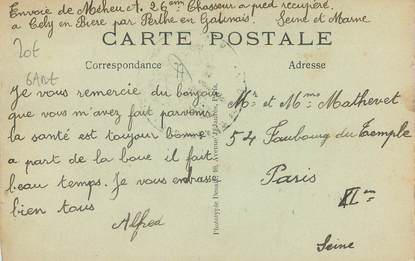 Envoie de Méheu A. 26em Chasseur a pied recupéré
a Cely en Biere par Perthe en Gatinais. Seine et Marne
CARTE POSTALE
Correspondance
Adresse
Je vous remercie du bonjour
que vous m'avez fait parvenir
la santé est toujour bonne
a part de la boue il fait
beau temps. Je vous embrasse
bien tous
Alfred
Mr et Mme Mathevet
54 Faubourg du Temple
Paris
XIem
Seine